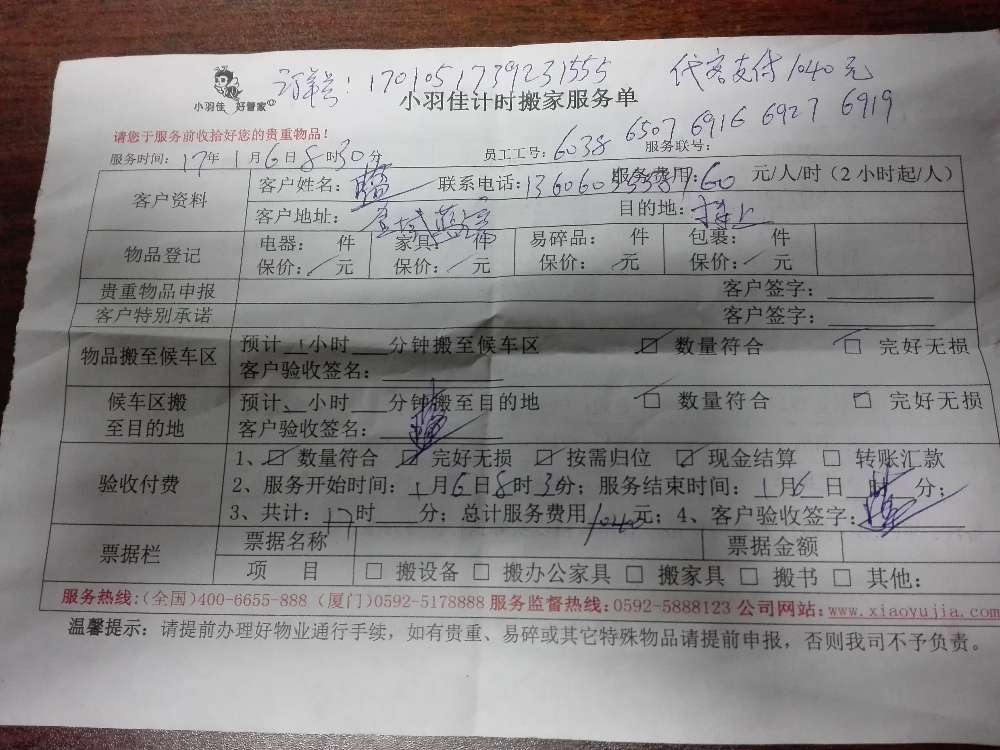 订单号：1701051739231555 代客支付1040元
小羽佳 好管家
小羽佳计时搬家服务单
请您于服务前收拾好您的贵重物品！
服务时间：17年1月6日8时30分 员工工号：6038 6507 6916 6927 6919 服务联号：
客户资料 客户姓名：蓝 联系电话： 服务费用：60 元/人/时（2小时起/人）
客户地址： 目的地：
物品登记 电器： 件 家具： 件 易碎品： 件 包裹： 件
保价： 元 保价： 元 保价： 元 保价： 元
贵重物品申报 客户签字：
客户特别承诺 客户签字：
物品搬至候车区 预计 小时 分钟搬至候车区 ☑ 数量符合 ☑ 完好无损
客户验收签名：
候车区搬至目的地 预计 小时 分钟搬至目的地 ☑ 数量符合 ☑ 完好无损
客户验收签名：
验收付费 1、☑ 数量符合 ☑ 完好无损 ☑ 按需归位 ☑ 现金结算 □ 转账汇款
2、服务开始时间：1月6日8时30分；服务结束时间：1月6日 时 分；
3、共计：17时 分；总计服务费用1040元；4、客户验收签字：
票据栏 票据名称 票据金额
项 目 □ 搬设备 □ 搬办公家具 □ 搬家具 □ 搬书 □ 其他：
服务热线：（全国）400-6655-888（厦门）0592-5178888 服务监督热线：0592-5888123 公司网站：www.xiaoyujia.com
温馨提示：请提前办理好物业通行手续，如有贵重、易碎或其它特殊物品请提前申报，否则我司不予负责。